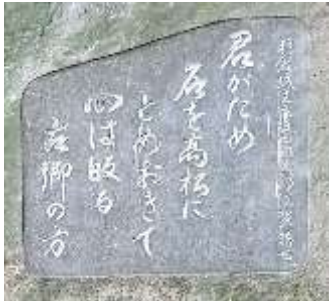 君がため
名を高松に
とめおきて
心は皈る
古郷の方